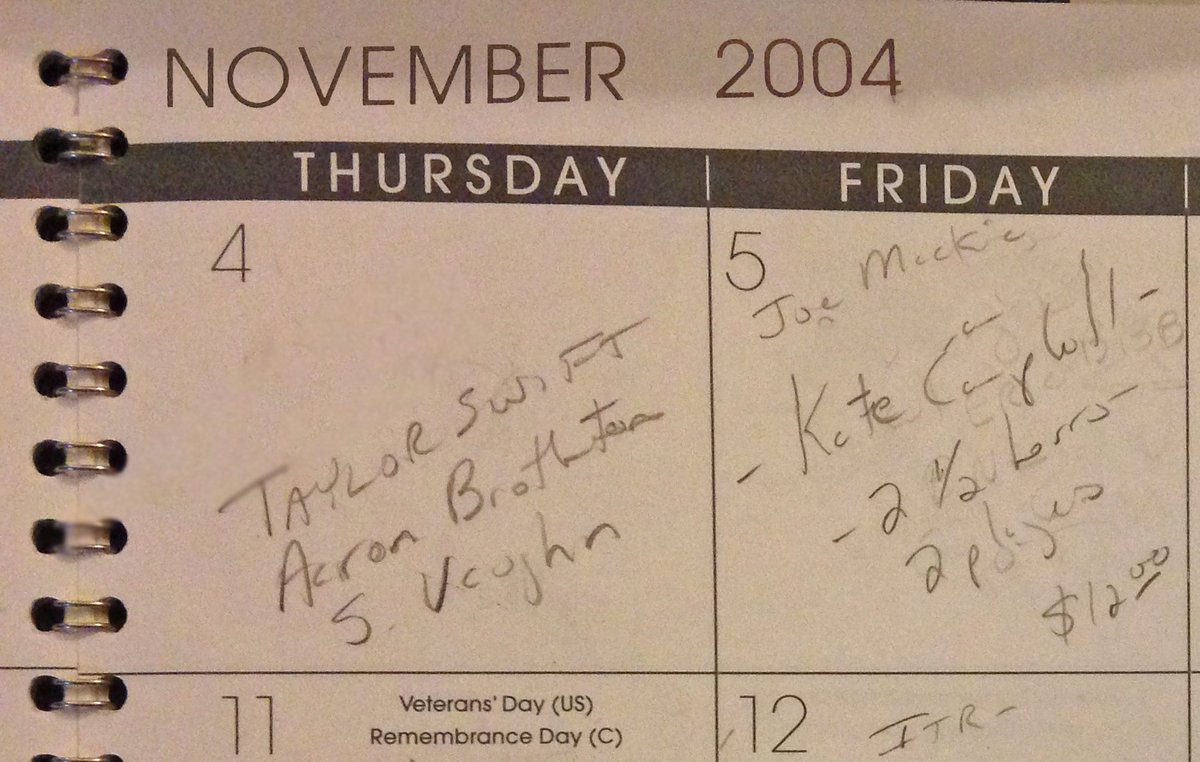 NOVEMBER 2004
THURSDAY FRIDAY
4
TAYLOR SWIFT
Aaron
S. Vaughn
5
Joe Mackie
- Kate Campbell -
- 2 1/2 hours -
2 plays
$12.00
11
Veterans' Day (US)
Remembrance Day (C)
12
ITR -